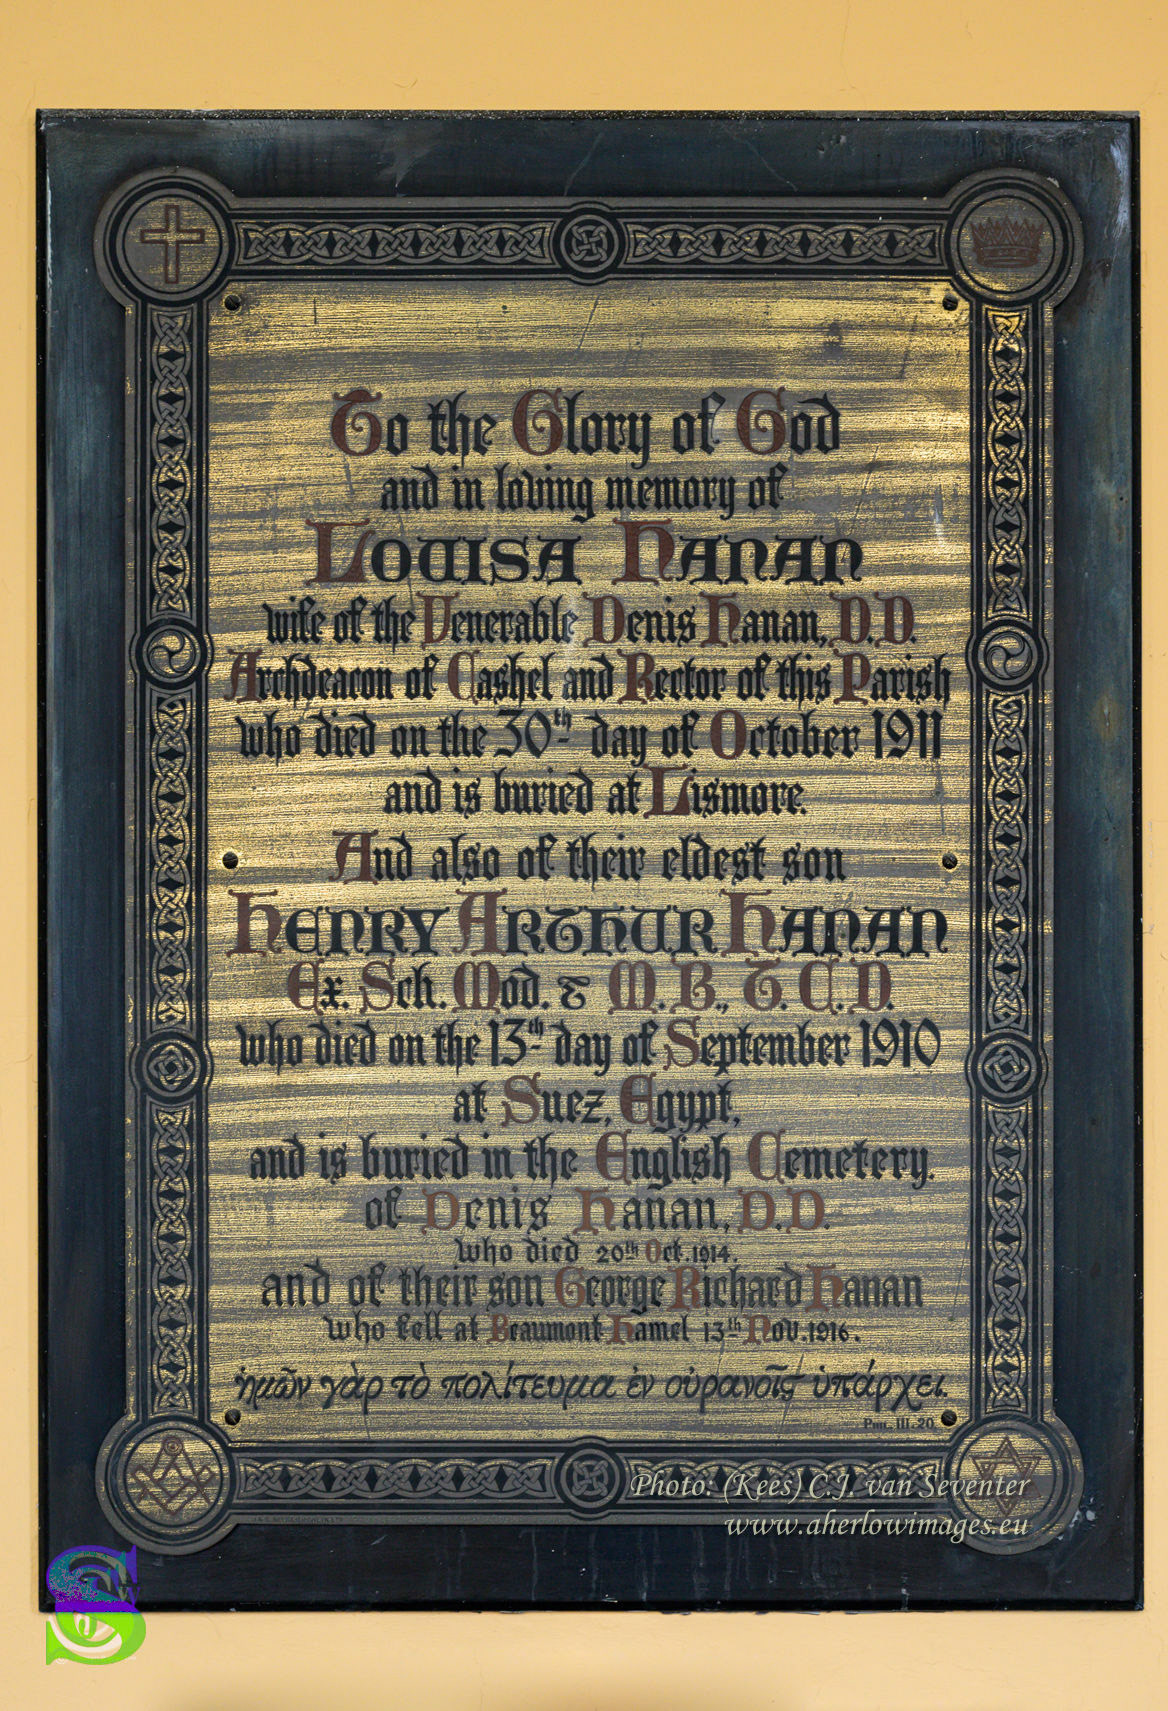 To the Glory of God
and in loving memory of
LOUISA HANAN
wife of the Venerable Denis Hanan, D.D.
Archdeacon of Cashel and Rector of this Parish
who died on the 30th day of October 1911
and is buried at Lismore.
And also of their eldest son
HENRY ARTHUR HANAN
Ex. Sch. Mod. & M.B., T.C.D.
who died on the 13th day of September 1910
at Suez, Egypt,
and is buried in the English Cemetery.
of Denis Hanan, D.D.
who died 20th Oct. 1914.
and of their son George Richard Hanan
who fell at Beaumont-Hamel 13th Nov. 1916.
ἡμῶν γὰρ τὸ πολίτευμα ἐν οὐρανοῖς ὑπάρχει.
PHIL. III. 20.
Photo: (Kees) C.J. van Seventer
www.aherlowimages.eu